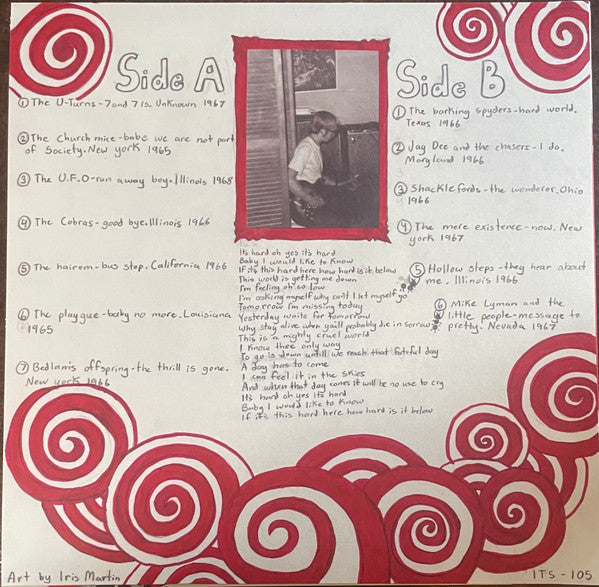 Side A
① The U-Turns - 7 and 7 is. Unknown 1967
② The Church mice - babe we are not part
of Society. New york 1965
③ The U.F.O - run away boy. Illinois 1968
④ The Cobras - good bye. Illinois 1966
⑤ The hairem - bus stop. California 1966
⑥ The playgue - baby no more. Louisiana
1965
⑦ Bedlam's offspring - the thrill is gone.
New york 1966
Its hard oh yes its hard
Baby I would like to know
If its this hard here how hard is it below
This world is getting me down
I'm feeling oh so low
I'm asking myself why can't I let myself go
Tomorrow I'm missing today
Yesterday waits for tomorrow
Why stay alive when ya'll probably die in sorrow
This is a mighty cruel world
I know thee only way
To go is down untill we reach that fateful day
A day has to come
I can feel it in the skies
And when that day comes it will be no use to cry
It's hard oh yes it's hard
Baby I would like to know
If it's this hard here how hard is it below
Side B
① The barking spyders - hard world.
Texas 1966
② Jay Dee and the chasers - I do.
Maryland 1966
③ Shacklefords - the wonderer. Ohio
1966
④ The mere existence - now. New
york 1967
⑤ Hollow steps - they hear about
me. Illinois 1966
⑥ Mike Lyman and the
little people - message to
pretty. Nevada 1967
Art by Iris Martin
ITS - 105